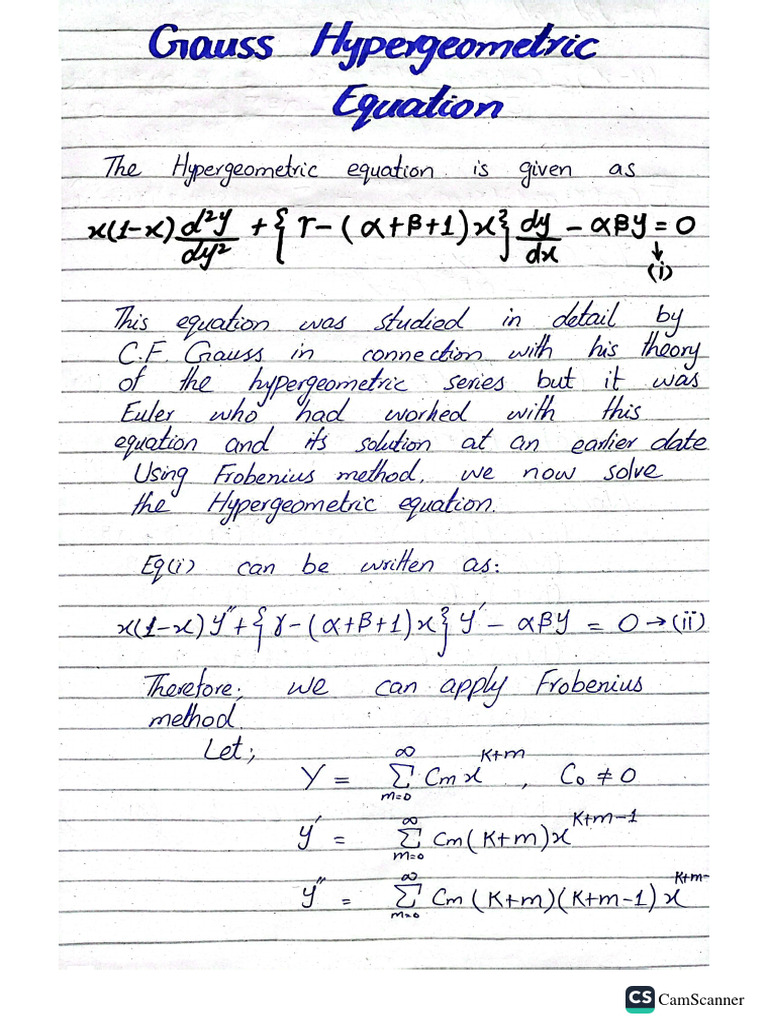 Gauss Hypergeometric
Equation
The Hypergeometric equation is given as
x(1-x) d²y/dy² + {γ-(α+β+1)x} dy/dx - αβy = 0
↓
(i)
This equation was studied in detail by
C.F. Gauss in connection with his theory
of the hypergeometric series but it was
Euler who had worked with this
equation and its solution at an earlier date
Using Frobenius method, we now solve
the Hypergeometric equation.
Eq(i) can be written as:
x(1-x)y'' + {γ-(α+β+1)x}y' - αβy = 0 → (ii)
Therefore; we can apply Frobenius
method.
Let;
y = ∞ Σ m=0 Cm x^K+m , C₀ ≠ 0
y' = ∞ Σ m=0 Cm(K+m)x^K+m-1
y'' = ∞ Σ m=0 Cm(K+m)(K+m-1)x^K+m-
CS CamScanner